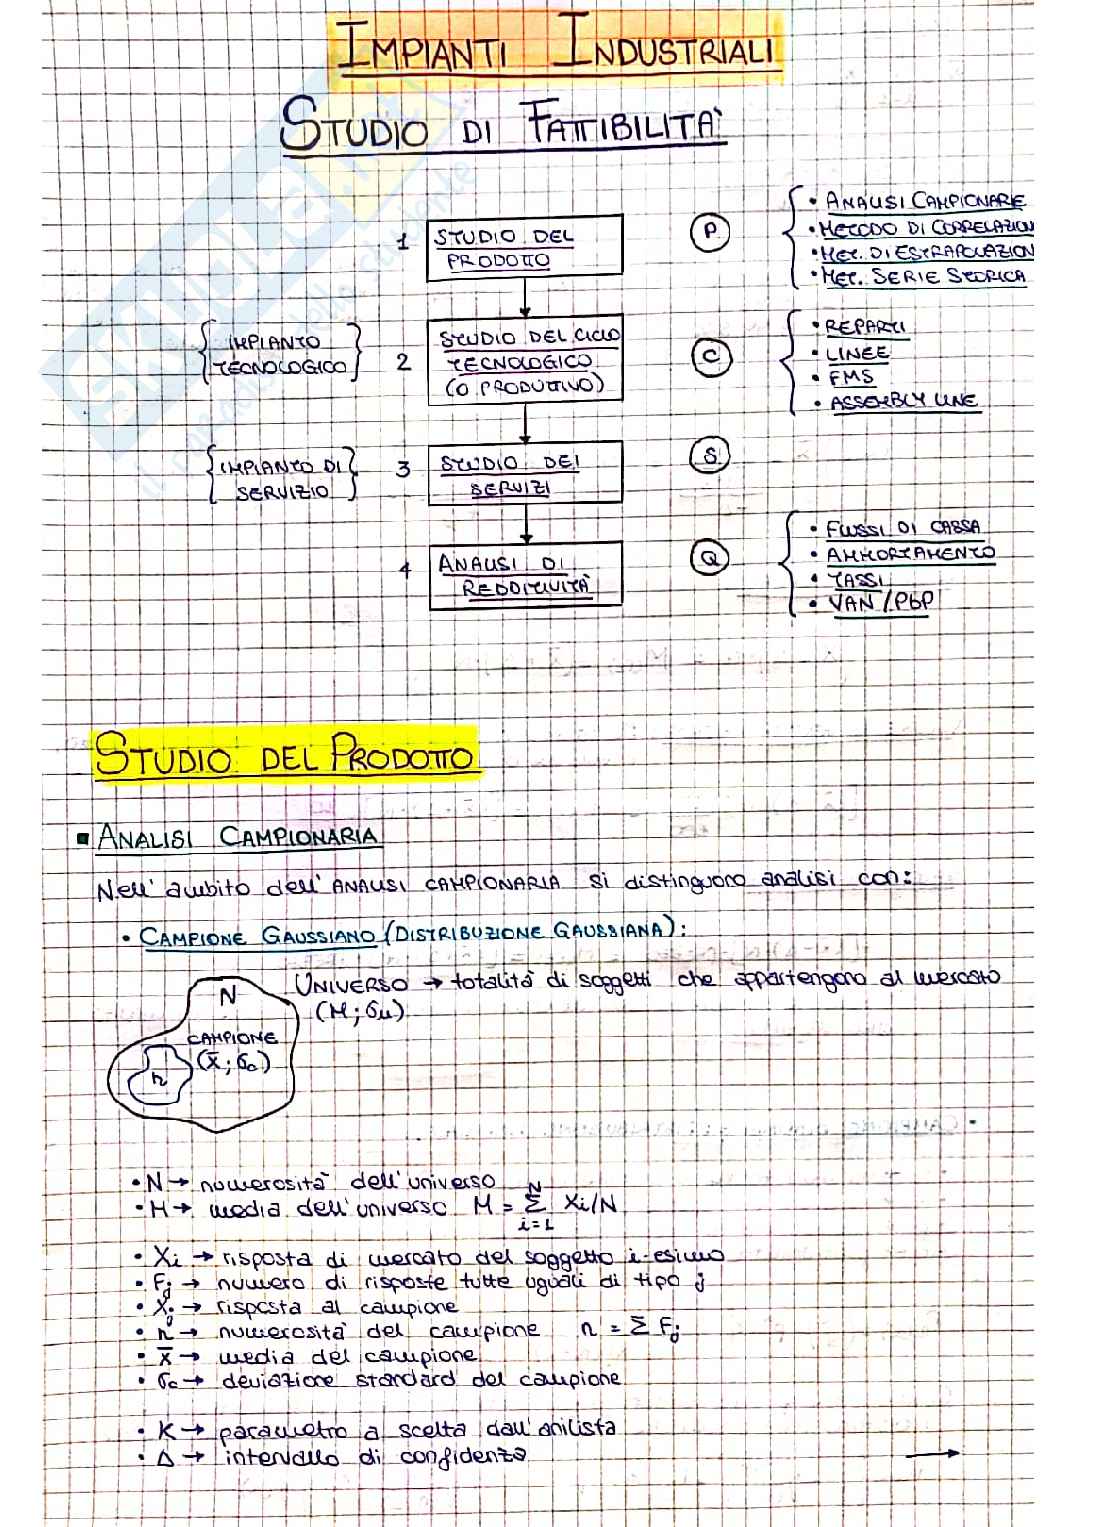 IMPIANTI INDUSTRIALI
STUDIO DI FATTIBILITA'
1 STUDIO DEL PRODOTTO
P
• ANALISI CAMPIONARIE
• METODO DI CORRELAZION
• MET. DI ESTRAPOLAZION
• MET. SERIE STORICA
IMPIANTO TECNOLOGICO
2 STUDIO DEL CICLO TECNOLOGICO (O PRODUTTIVO)
C
• REPARTI
• LINEE
• FMS
• ASSEMBLY LINE
IMPIANTO DI SERVIZIO
3 STUDIO DEI SERVIZI
S
4 ANALISI DI REDDITIVITÀ
Q
• FLUSSI DI CASSA
• AMMORTAMENTO
• TASSI
• VAN / PBP
STUDIO DEL PRODOTTO
▪ ANALISI CAMPIONARIA
Nell'ambito dell'ANALISI CAMPIONARIA si distinguono analisi con:
• CAMPIONE GAUSSIANO (DISTRIBUZIONE GAUSSIANA):
UNIVERSO → totalità di soggetti che appartengono al mercato
(M; σu)
N
CAMPIONE
(x̄; σc)
n
• N → numerosità dell'universo
• M → media dell'universo M = Σ_{i=1}^{N} Xi/N
• Xi → risposta di mercato del soggetto i-esimo
• Fj → numero di risposte tutte uguali di tipo j
• Xj → risposta al campione
• n → numerosità del campione n = Σ Fj
• x̄ → media del campione
• σc → deviazione standard del campione
• K → parametro a scelta dall'anilista
• Δ → intervallo di confidenza